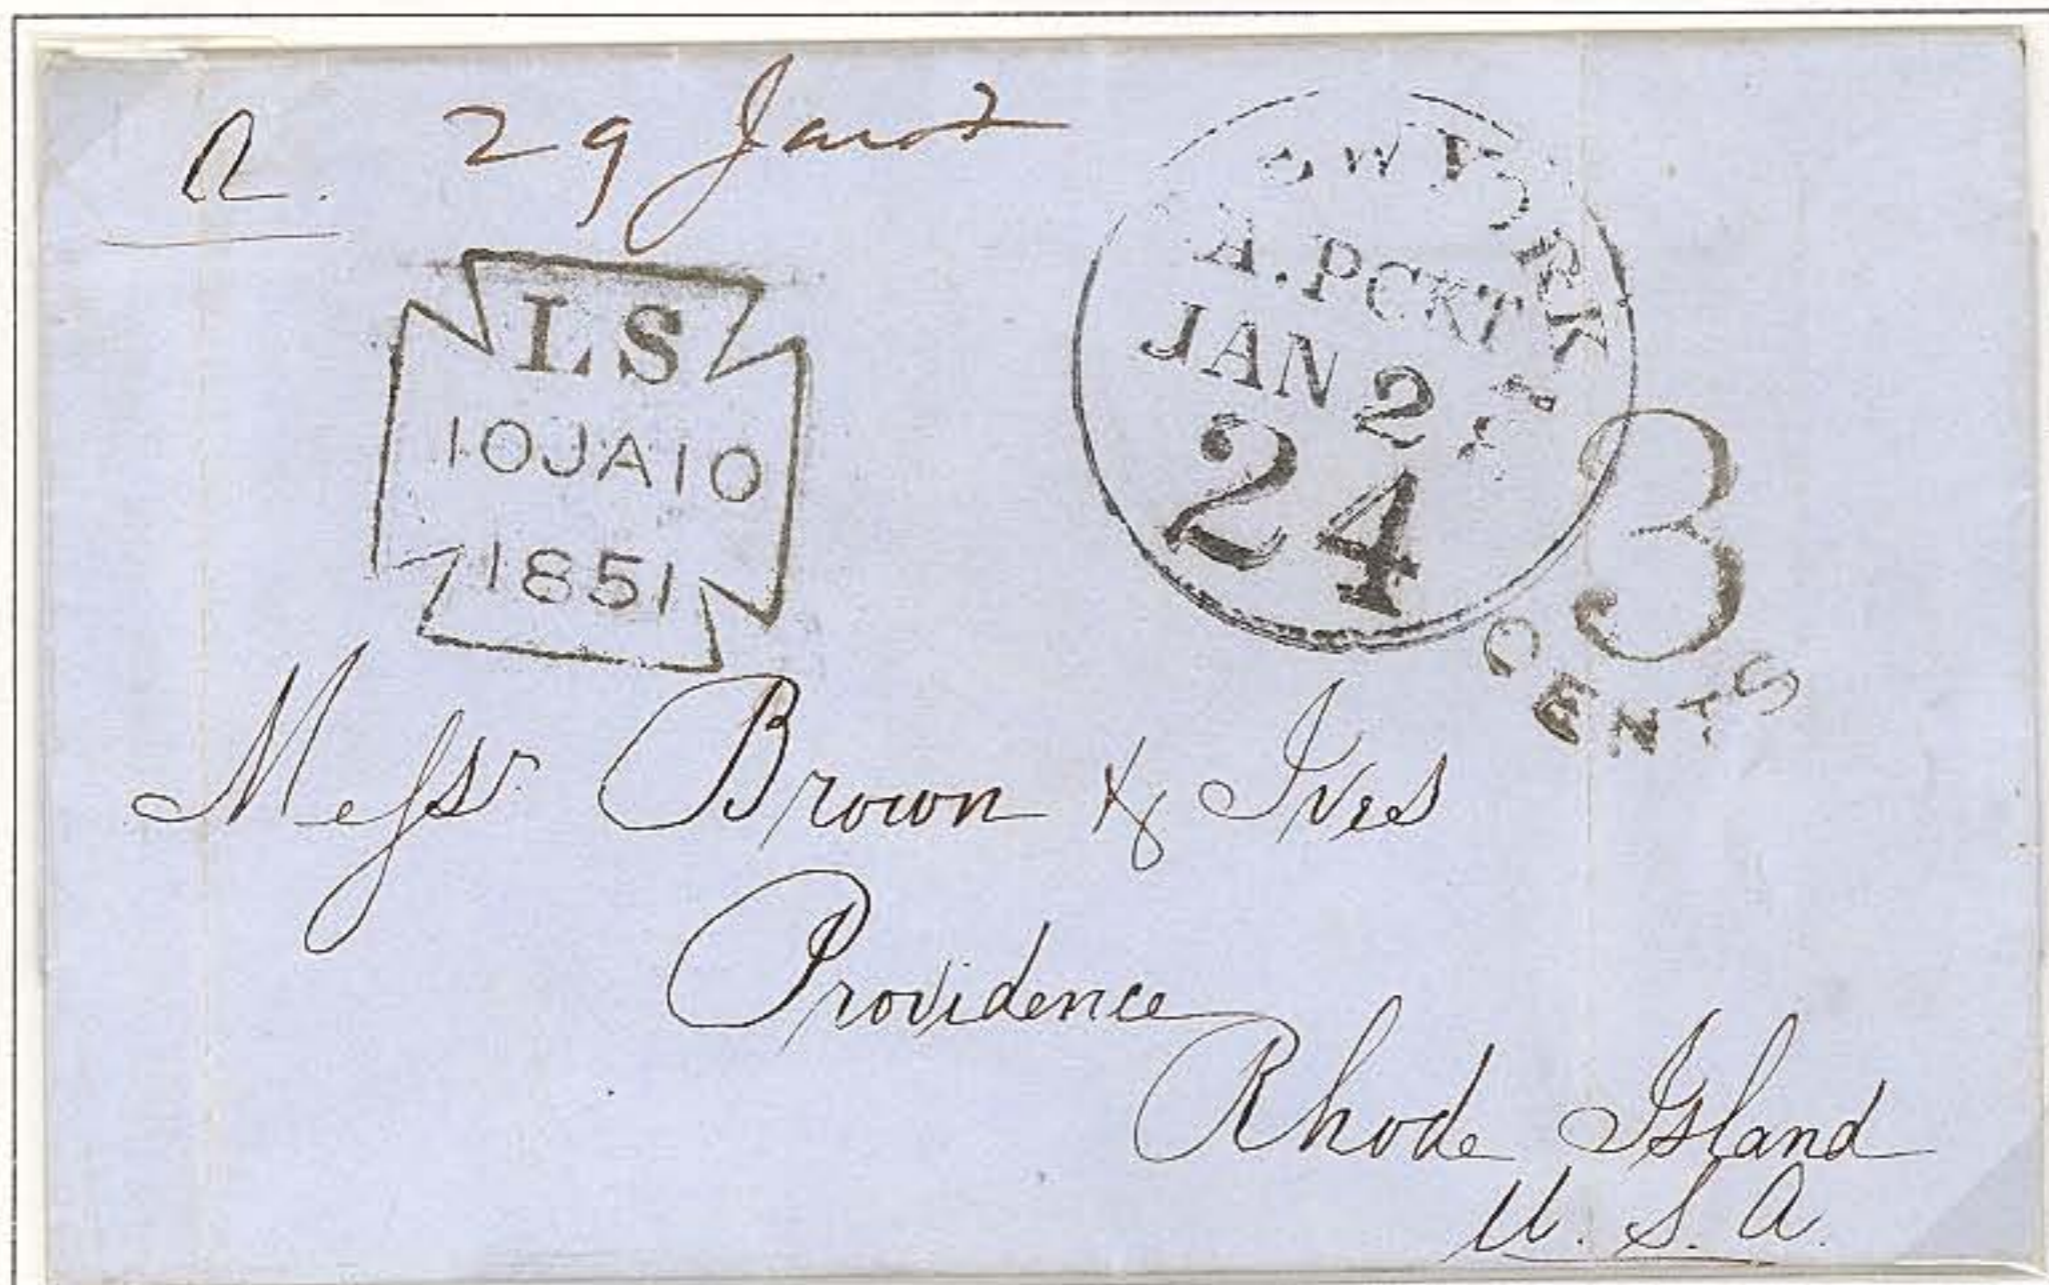 R. 29 Jan
L S
10JA10
1851
NEW YORK
A. PCKT
JAN 2
24
3
CENTS
Messr Brown & Ives
Providence
Rhode Island
U. S. A.